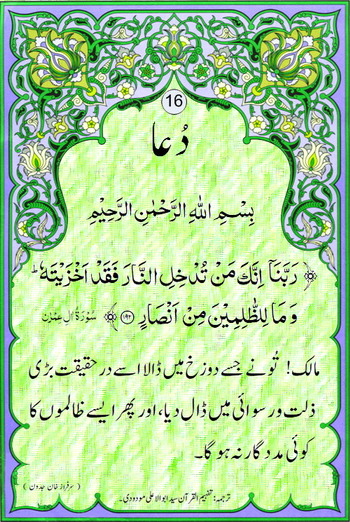 16
دُعا
بِسْمِ اللهِ الرَّحْمٰنِ الرَّحِيْمِ
﴿ رَبَّنَاۤ اِنَّكَ مَنْ تُدْخِلِ النَّارَ فَقَدْ اَخْزَيْتَهٗ ؕ
وَمَا لِلظّٰلِمِيْنَ مِنْ اَنْصَارٍ ﴿۱۹۲﴾ سُوۡرَةُ اٰلِ عِمۡرٰن
مالک! تُونے جسے دوزخ میں ڈالا اسے در حقیقت بڑی
ذلت ورسوائی میں ڈال دیا، اور پھر ایسے ظالموں کا
کوئی مددگار نہ ہوگا۔
( سرفراز خان جدون )
ترجمہ: تفہیم القرآن سید ابوالاعلیٰ مودودی۔